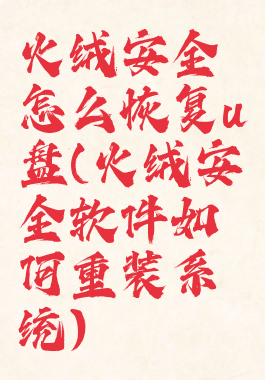 火绒安全
怎么恢复u
盘(火绒安
全软件如
何重装系
统)